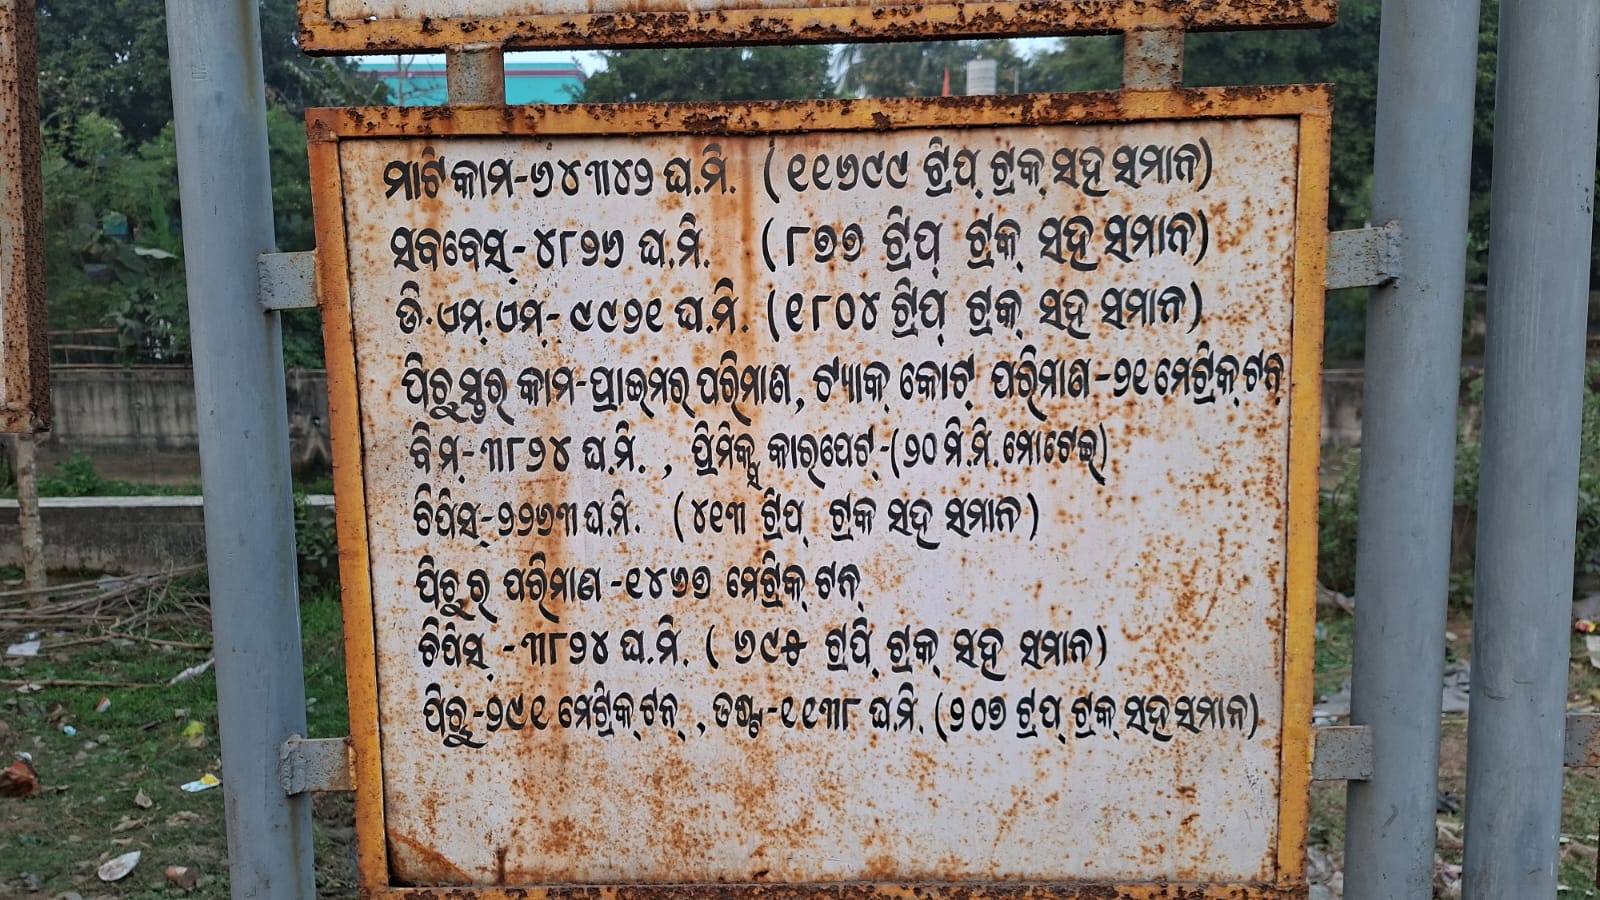 ମାଟି କାମ-୬୪୩୪୨ ଘ.ମି. (୧୧୬୯୯ ଟ୍ରିପ୍ ଟ୍ରକ୍ ସହ ସମାନ)
ସବବେସ୍-୪୮୨୬ ଘ.ମି. (୮୭୭ ଟ୍ରିପ୍ ଟ୍ରକ୍ ସହ ସମାନ)
ଡି.ଏମ୍.ଏମ୍-୯୯୨୧ ଘ.ମି. (୧୮୦୪ ଟ୍ରିପ୍ ଟ୍ରକ୍ ସହ ସମାନ)
ପିଚୁସ୍ତର କାମ-ପ୍ରାଇମର ପରିମାଣ, ଟ୍ୟାକ୍ କୋଟ୍ ପରିମାଣ-୨୧ ମେଟ୍ରିକ୍ ଟନ୍
ବିମ୍-୩୮୨୪ ଘ.ମି., ପ୍ରିମିକ୍ସ କାରପେଟ୍-(୨୦ ମି.ମି. ମୋଟେଇ)
ଚିପିସ୍-୨୨୭୩ ଘ.ମି. (୪୧୩ ଟ୍ରିପ୍ ଟ୍ରକ ସହ ସମାନ)
ପିଚୁର ପରିମାଣ-୧୪୬୭ ମେଟ୍ରିକ୍ ଟନ୍
ଚିପିସ୍-୩୮୨୪ ଘ.ମି. (୬୯୫ ଟ୍ରପି୍ ଟ୍ରକ୍ ସହ ସମାନ)
ପିଚୁ-୨୯୧ ମେଟ୍ରିକ୍ ଟନ୍, ଡଷ୍ଟ-୧୧୩୮ ଘ.ମି. (୨୦୭ ଟ୍ରପ୍ ଟ୍ରକ୍ ସହ ସମାନ)